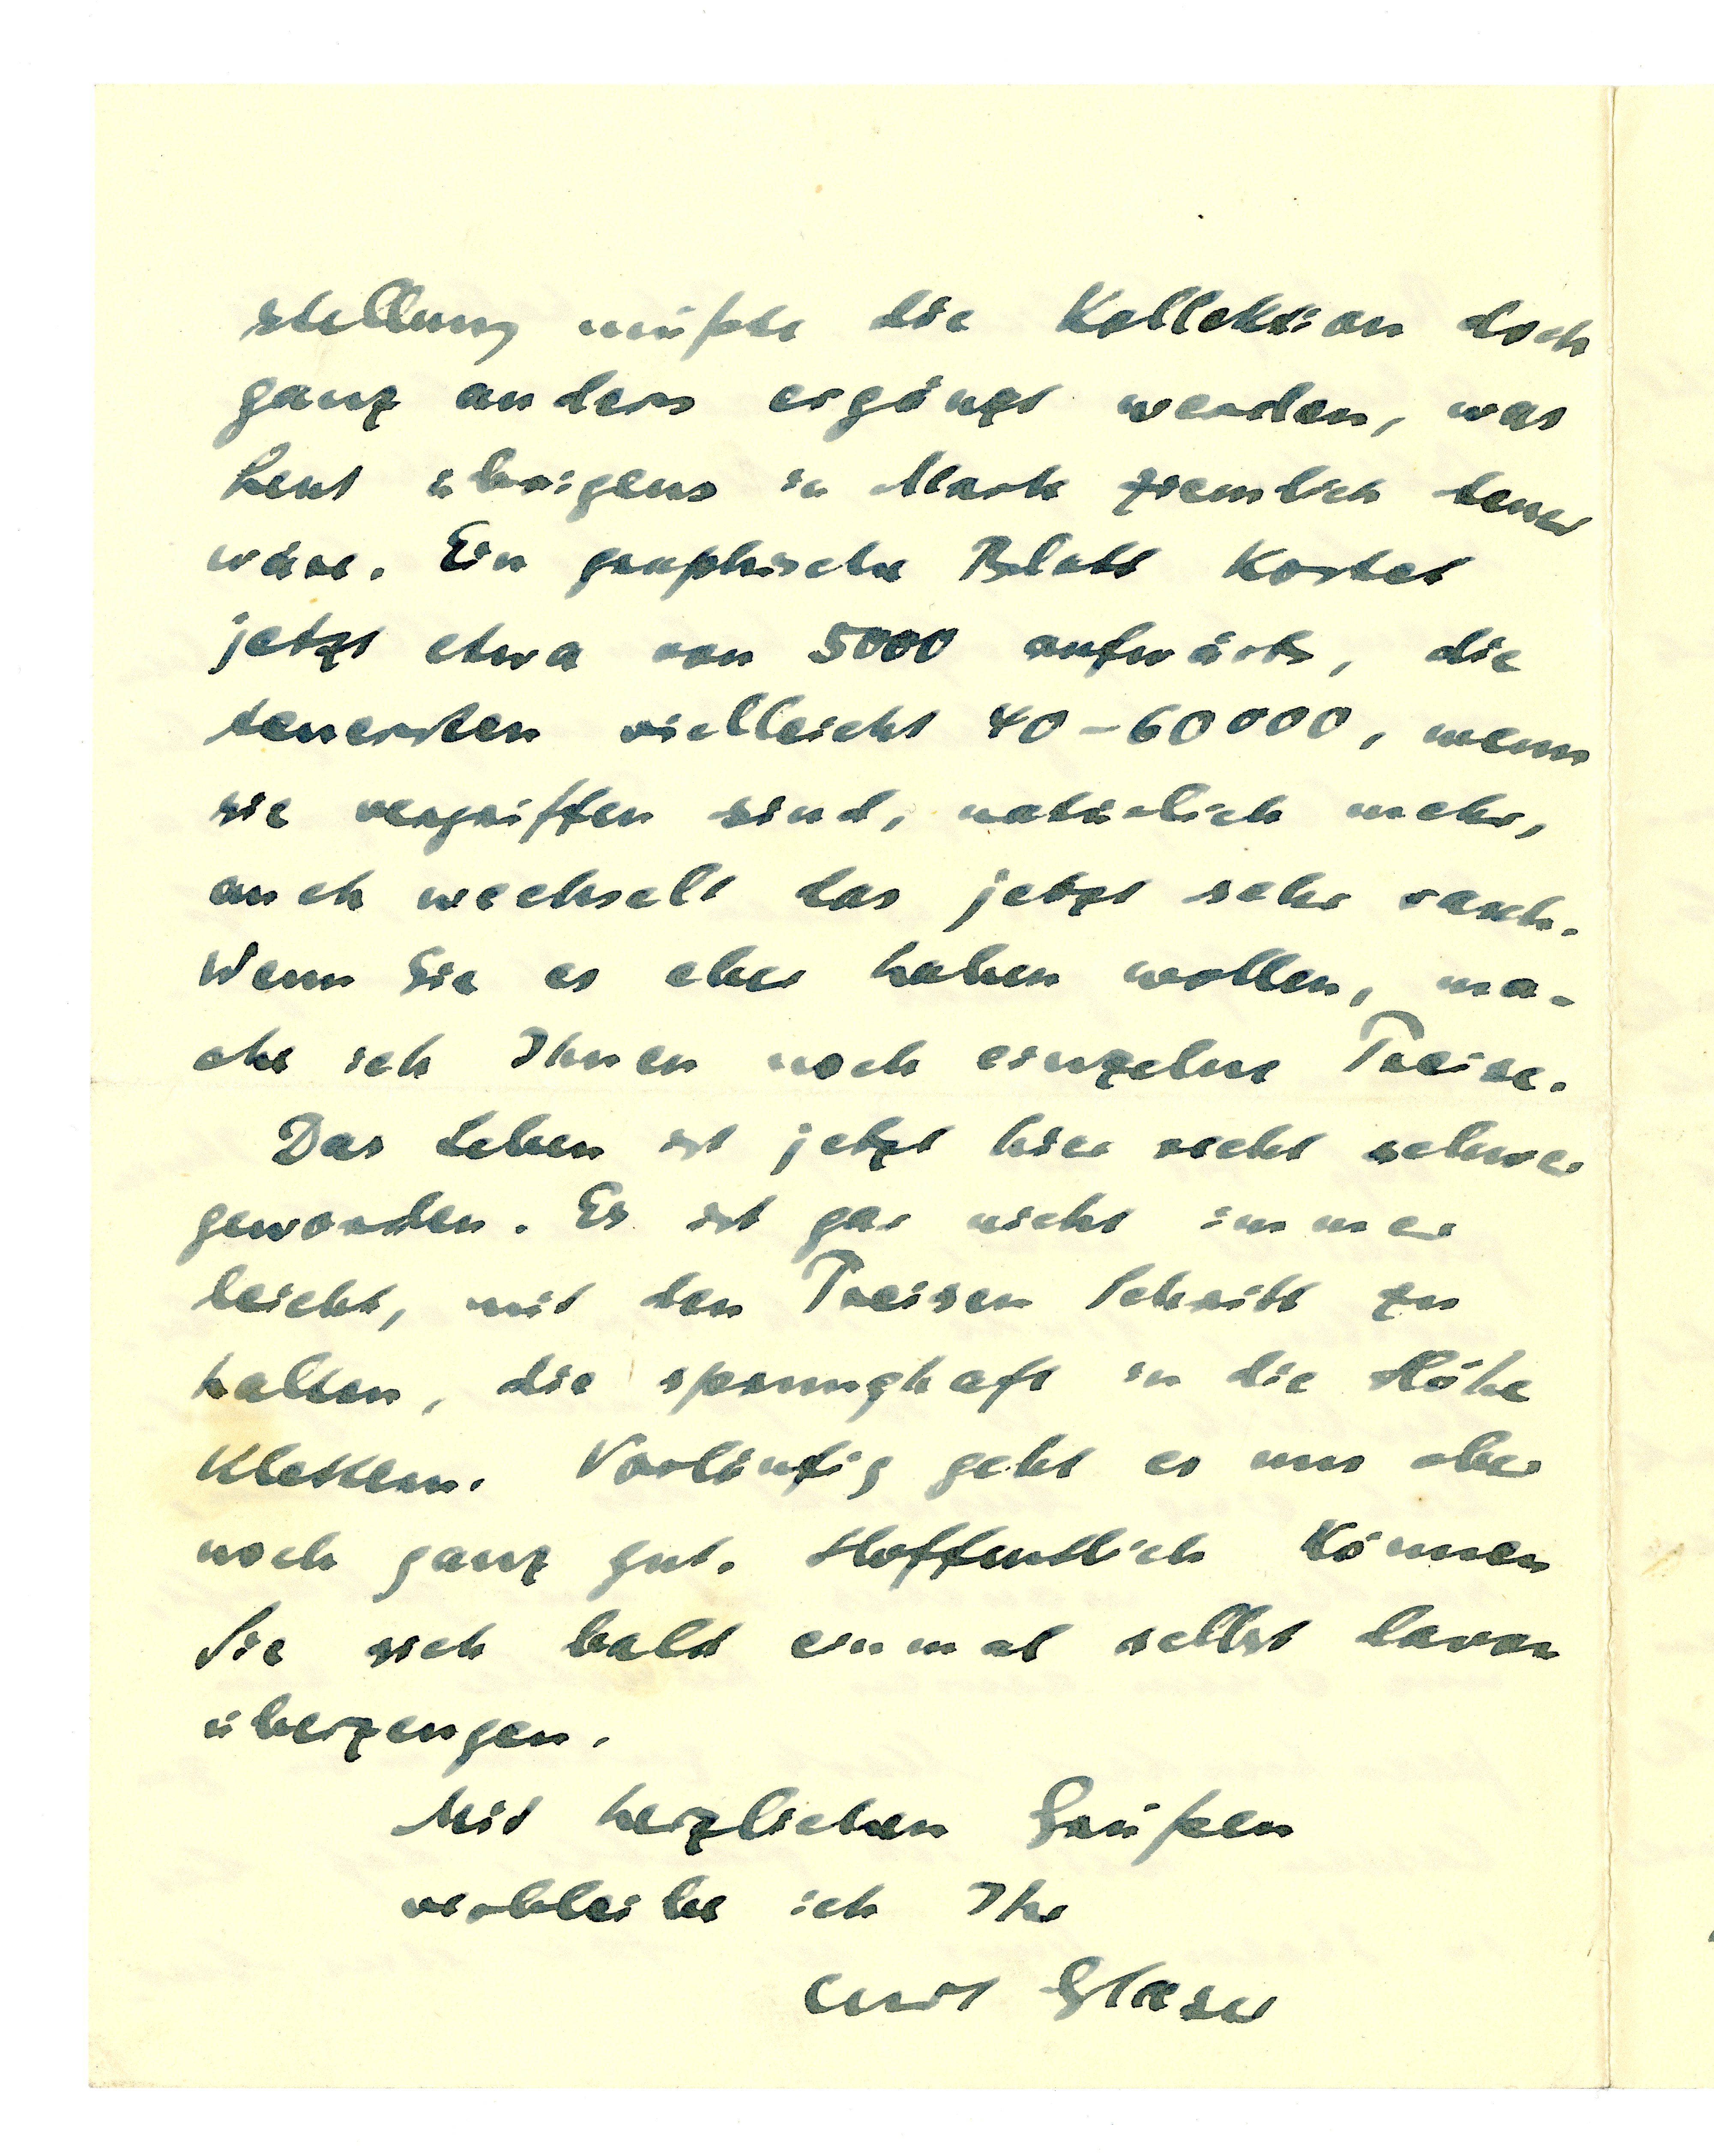 stellung müßte die Kollektion doch
ganz anders ergänzt werden, was
heut übrigens in Mark ziemlich teuer
wäre. Ein graphische Blatt kostet
jetzt etwa von 5000 aufwärts, die
teuersten vielleicht 40-60000, wenn
sie vergriffen sind, natürlich mehr,
auch wechselt das jetzt sehr rasch.
Wenn Sie es aber haben wollen, ma-
che ich Ihnen noch einzelne Preise.
Das Leben ist jetzt hier recht schwer
geworden. Es ist gar nicht immer
leicht, mit den Preisen Schritt zu
halten, die sprunghaft in die Höhe
klettern. Vorläufig geht es uns aber
noch ganz gut. Hoffentlich können
Sie sich bald einmal selbst davon
überzeugen.
Mit herzlichen Grüßen
verbleibe ich Ihr
Curt Glaser